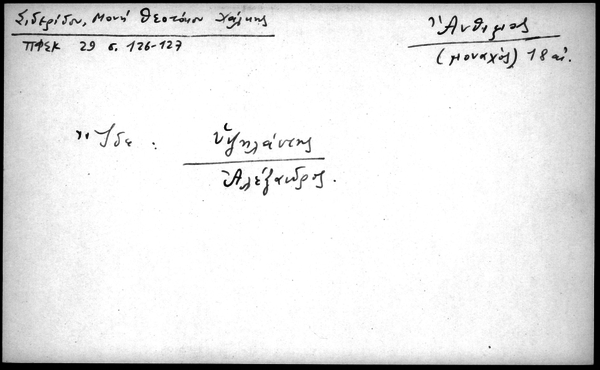 Σιδερίδου, Μονή Θεοτόκου Χάλκης
ΠΦΣΚ 29 σ. 126-127
Ἄνθιμος
(μοναχός) 18 αἰ.
Ἴδε :
Ὑψηλάντης
Ἀλέξανδρος.